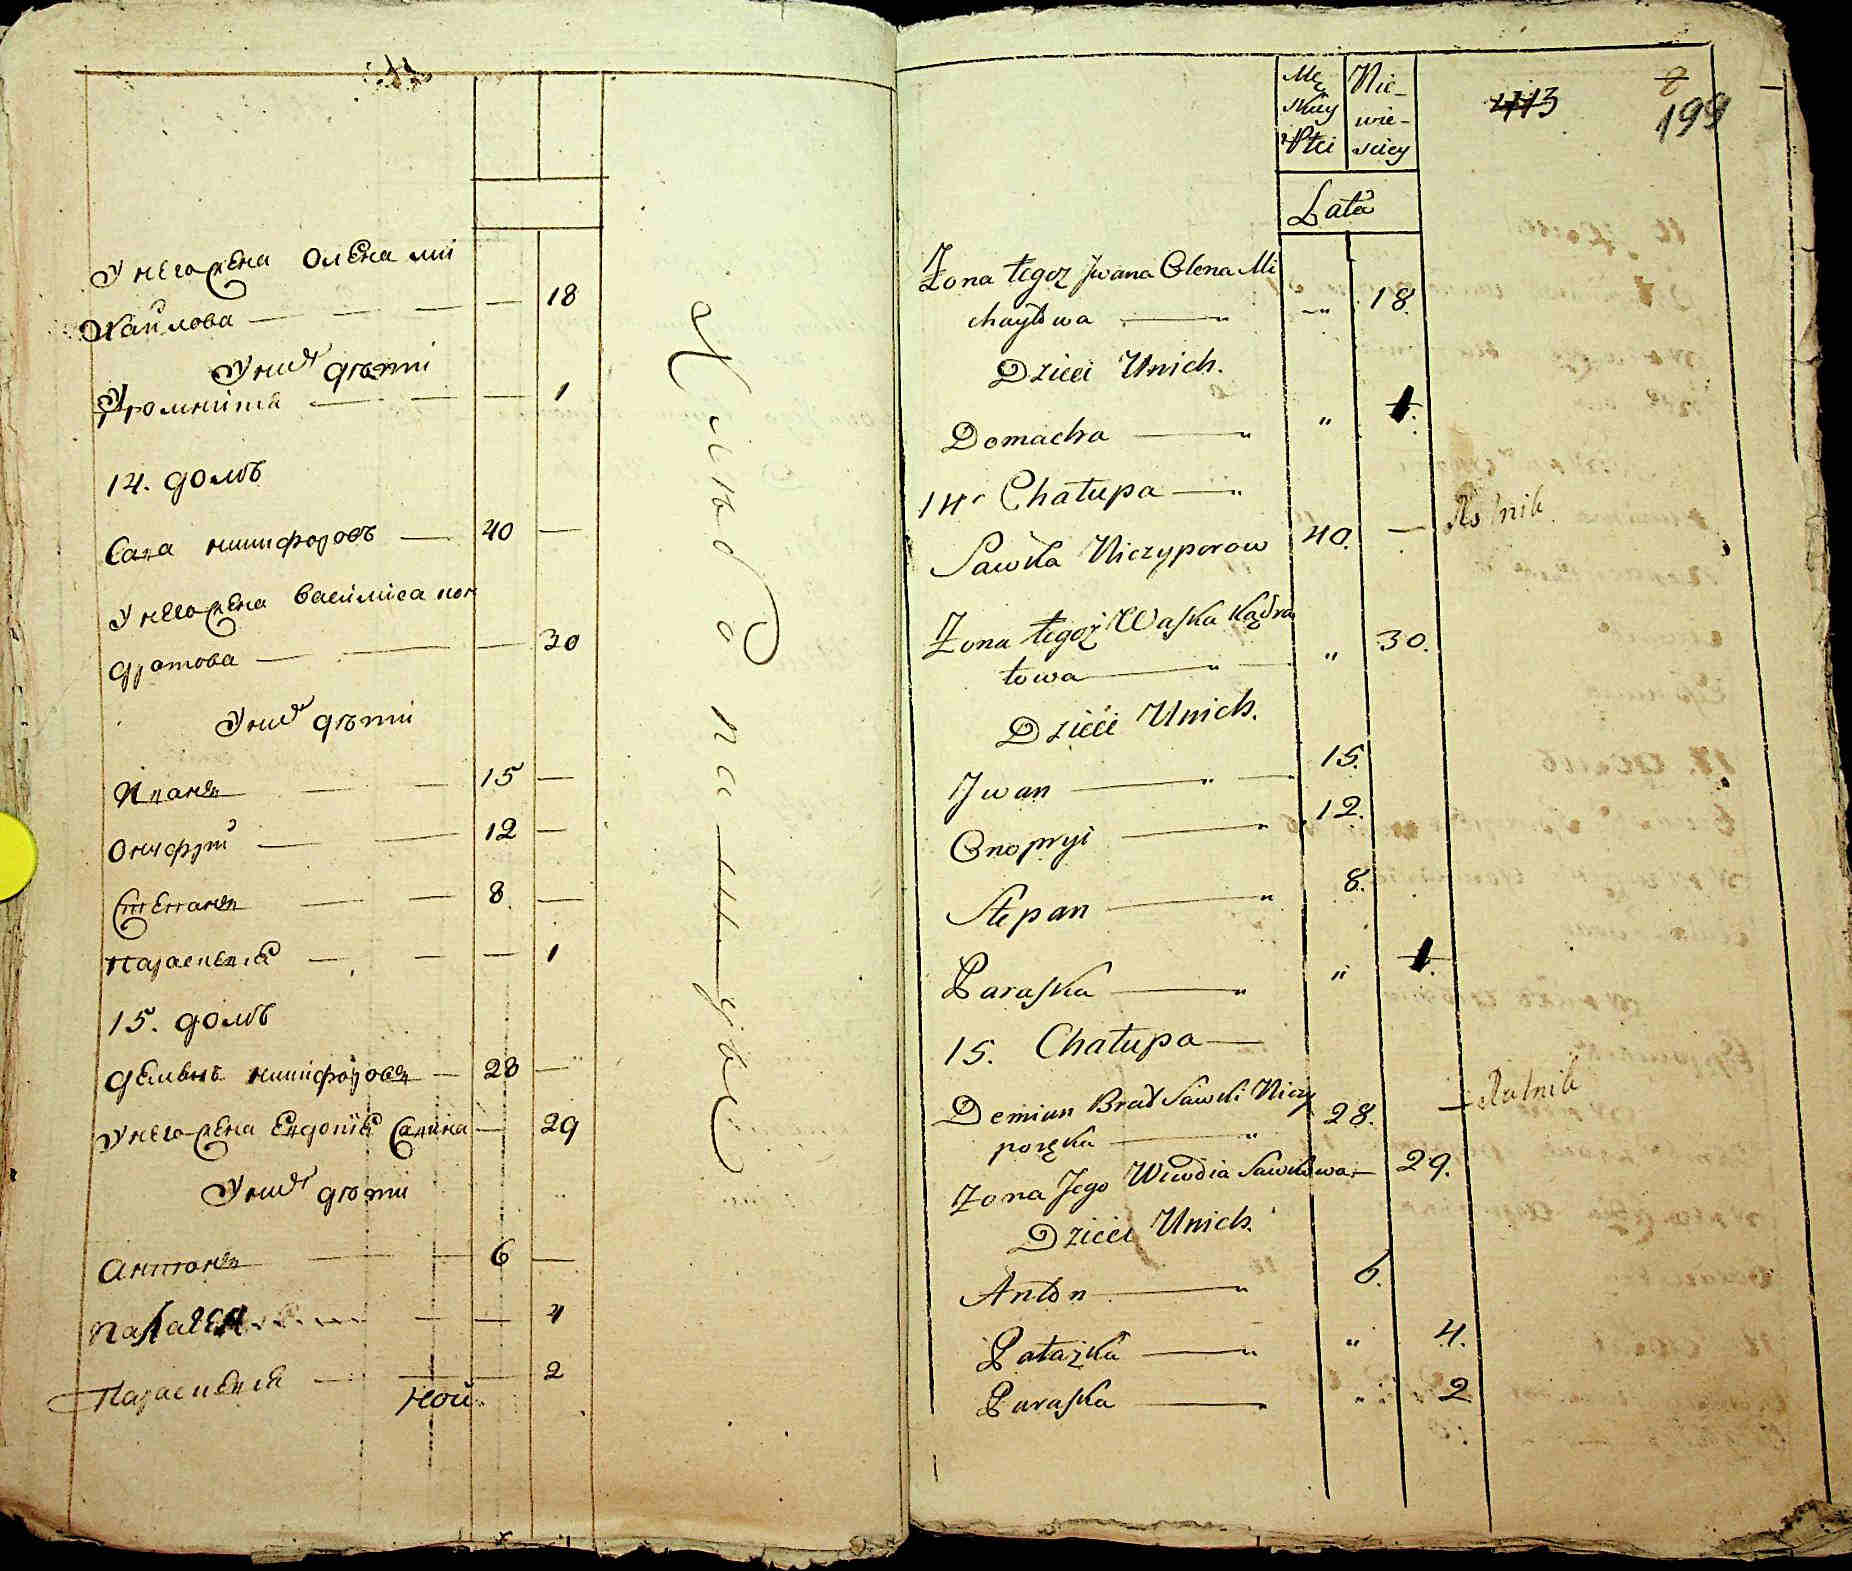 У него жена Олена Ми
хайлова — — — — 18
У них дѣти
— — — 1
14. домъ
Сава Никифоровъ — 40 —
У него жена Василиса Кон
дратова — — — 30
У них дѣти
Иванъ — — 15 —
Онуфрій — — 12 —
Степанъ — — 8 —
Парасковія — — — 1
15. домъ
Демьянъ Никифоровъ — 28 —
У него жена Евдокія Савина — 29
У них дѣти
Антонъ — — 6 —
Палагея — — 4
Парасковія — — 2
ной
Męskiey Płci
Niewieściey
Lata
113
199
Żona tegoż Jwana Olena Mi
chayłowa — „ 18.
Dzieci Unich.
Domacha — „ 1.
14. Chałupa —
Sawka Niczyporow 40. — Rolnik
Żona tegoż Waska Kądra
towa — „ 30.
Dzieci Unich.
Jwan — 15.
Onopryi — 12.
Stepan — 8.
Paraska — „ 1.
15. Chałupa —
Demian Brat Sawki Niczy 28. — Rolnik
poręka —
Żona Jego Wiewdia Sawkowa — 29.
Dzieci Unich.
Anton — 6.
Pałażka — „ 4.
Paraska — „ 2